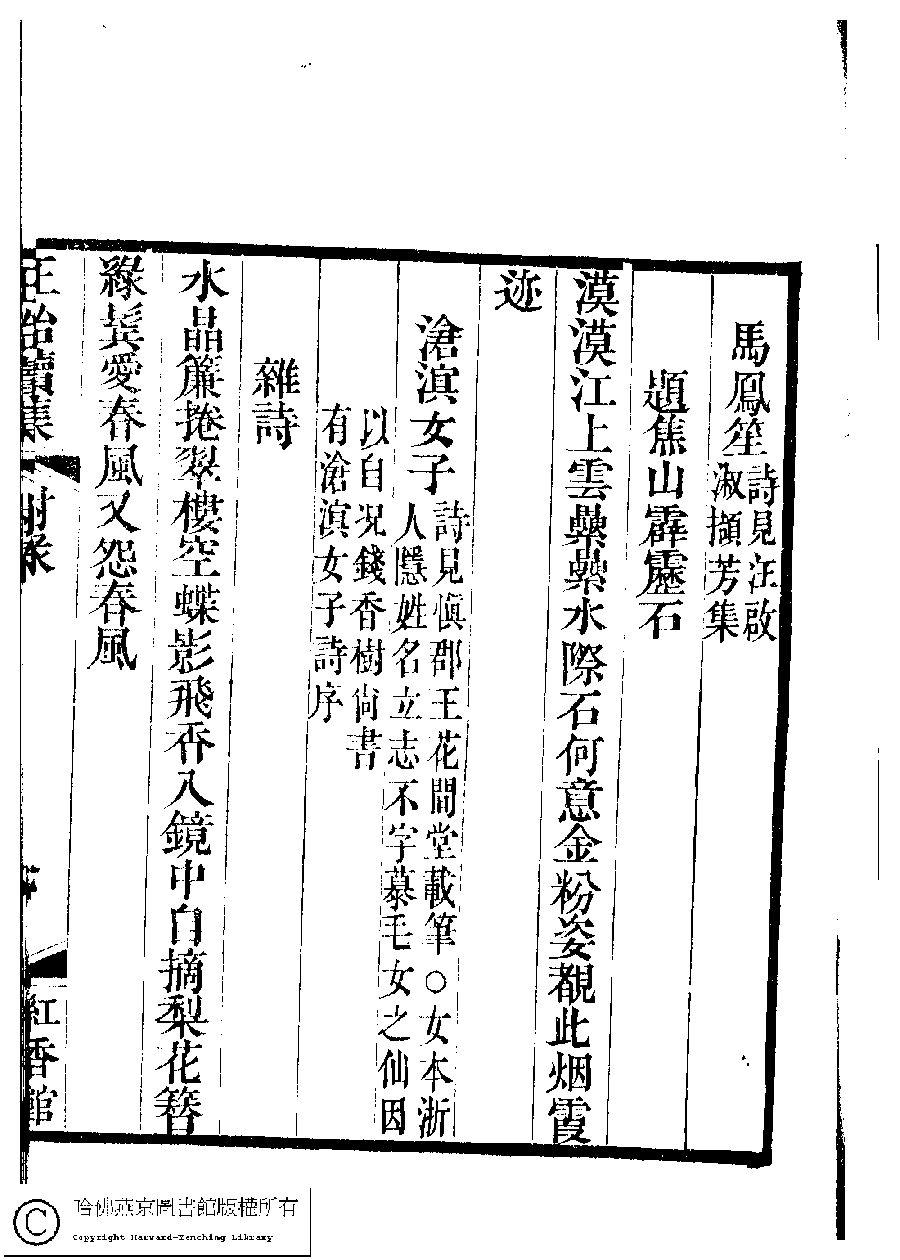 馬鳳笙詩見汪啟
淑擷芳集
題焦山霹靂石
漠漠江上雲纍纍水際石何意金粉姿覩此烟霞
迹
滄滇女子詩見愼郡王花間堂載筆○女本浙
人隱姓名立志不字慕毛女之仙因
以自况錢香樹尙書
有滄滇女子詩序
雜詩
水晶簾捲翠樓空蝶影飛香入鏡中自摘梨花簪
綠髩愛春風又怨春風
正始續集 附錄
紅香館
哈佛燕京圖書館版權所有
Copyright Harvard-Yenching Library